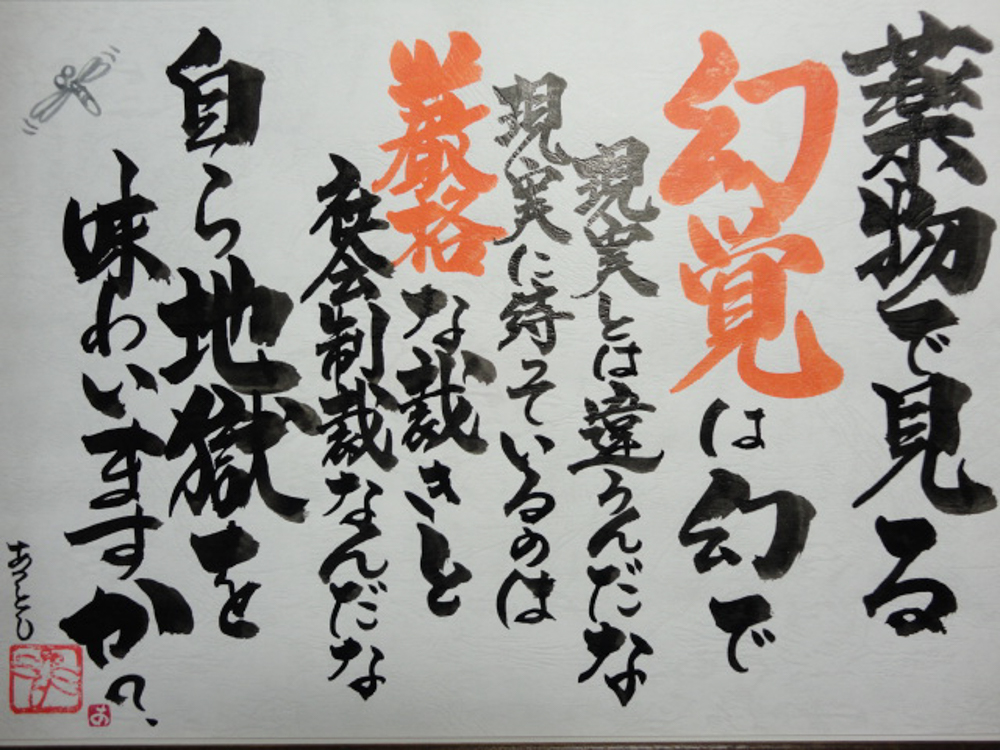 薬物で見る
幻覚は幻で
現実とは違うんだな
現実に待っているのは
厳格な裁きと
社会制裁なんだな
自ら地獄を
味わいますか?
あつとし
あ